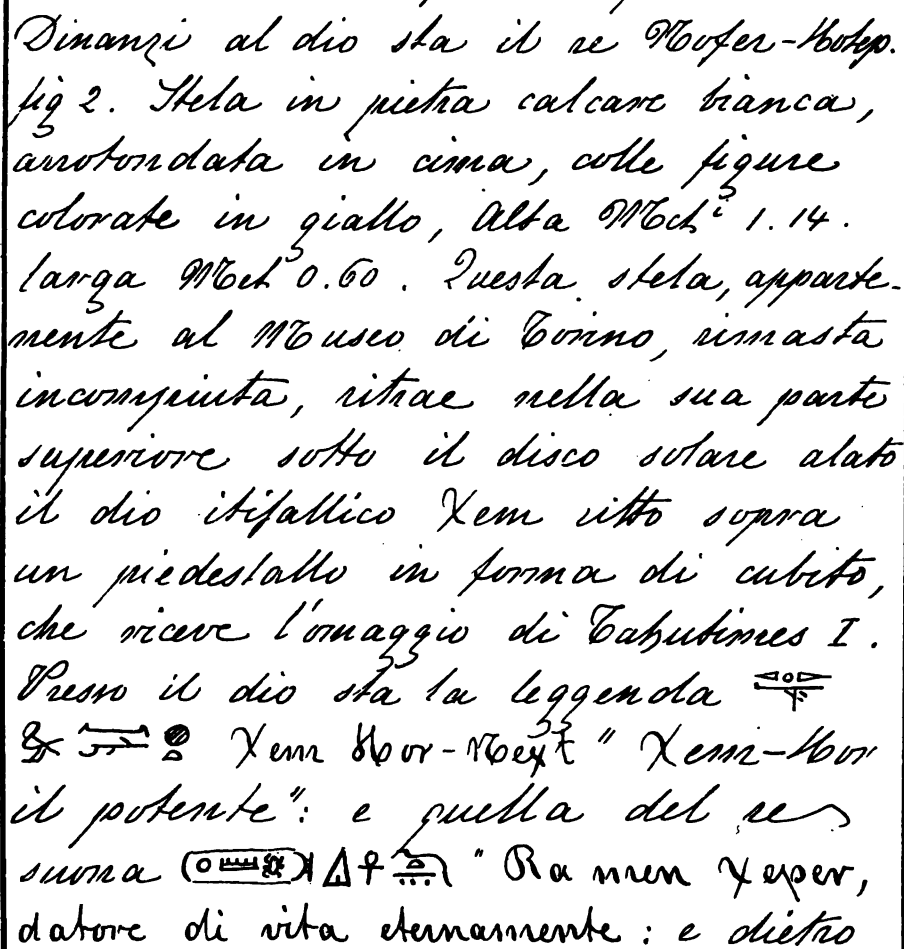 Dinanzi al dio sta il re Nofer-Hotep.
fig 2. Stela in pietra calcare bianca,
arrotondata in cima, colle figure
colorate in giallo, Alta Metⁱ 1.14.
larga Met 0.60. Questa stela, apparte-
nente al Museo di Torino, rimasta
incompiuta, ritrae nella sua parte
superiore sotto il disco solare alato
il dio itifallico Xem ritto sopra
un piedestallo in forma di cubito,
che riceve l'omaggio di Tahutimes I.
Presso il dio sta la leggenda
Xem Hor-Next " Xem-Hor
il potente": e quella del re
suona " Ra men Xeper,
datore di vita eternamente: e dietro